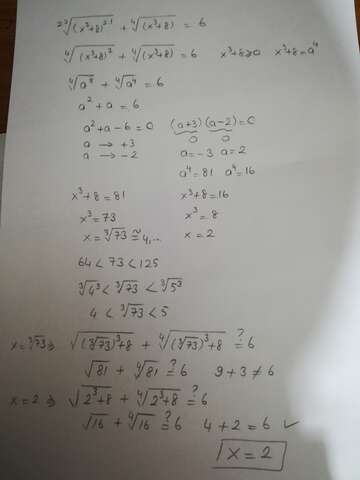 ²·²√(x³+8)²·¹ + ⁴√(x³+8) = 6
⁴√(x³+8)² + ⁴√(x³+8) = 6 x³+8≥0 x³+8=a⁴
⁴√a⁸ + ⁴√a⁴ = 6
a² + a = 6
a² + a - 6 = 0 (a+3)(a-2)=0
0 0
a → +3 a = -3 a = 2
a → -2
a⁴ = 81 a⁴ = 16
x³+8 = 81 x³+8 = 16
x³ = 73 x³ = 8
x = ³√73 ≅ 4,... x = 2
64 < 73 < 125
³√4³ < ³√73 < ³√5³
4 < ³√73 < 5
x = ³√73 ⇒ √(³√73)³+8 + ⁴√(³√73)³+8 ?= 6
√81 + ⁴√81 ?= 6 9+3 ≠ 6
x = 2 ⇒ √2³+8 + ⁴√2³+8 ?= 6
√16 + ⁴√16 ?= 6 4+2 = 6 ✓
x = 2